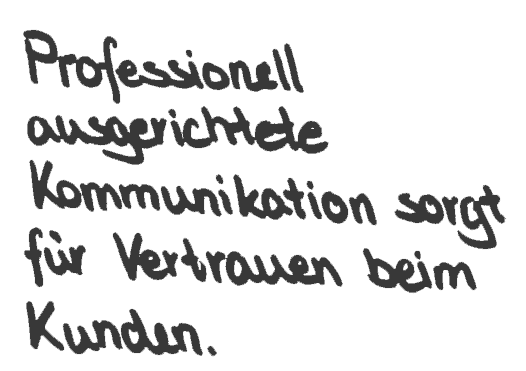 Professionell
ausgerichtete
Kommunikation sorgt
für Vertrauen beim
Kunden.